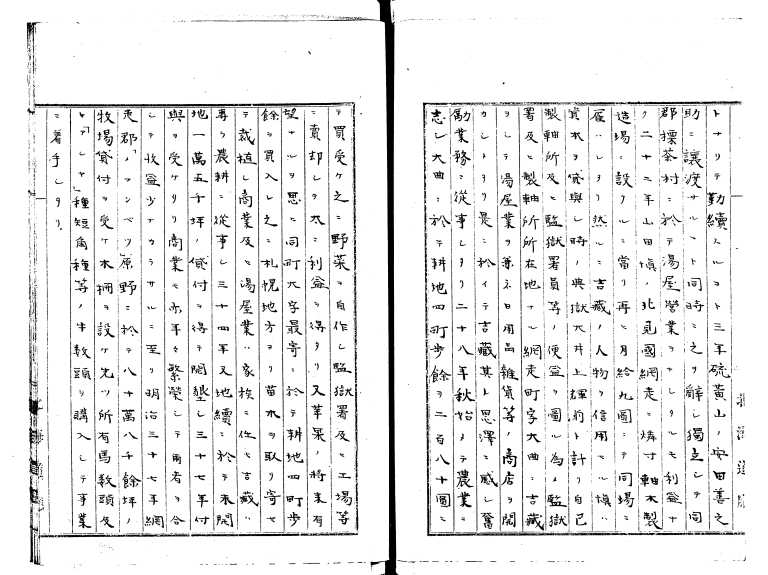 トナリテ勤續スルコト三年硫黄山ノ安田善之
助ニ讓渡サルヽト同時ニ之ヲ辭シ獨立シテ同
郡標茶村ニ於テ湯屋營業ヲナシタルモ利益ナ
ク二十二年山田愼ノ北見國網走ニ燐寸軸木製
造場ヲ設クルニ當リ再ヒ月給九圓ニテ同場ニ
雇ハレタリ然ルニ吉藏ノ人物ヲ信用セル愼ハ
資本ヲ貸與シ時ノ典獄大井上輝前ト計リ自己
製軸所及ヒ監獄署員等ノ便益ヲ圖ル為メ監獄
署及ヒ製軸所所在地ナル網走町字大曲ニ吉藏
ヲシテ湯屋業ヲ兼ネ日用品雜貨等ノ商店ヲ開
カシメタリ是ニ於イテ吉藏其ト恩澤ニ感シ奮
勵業務ニ從事シタリ二十八年秋始メテ農業ニ
志シ大曲ニ於テ耕地四町步餘ヲ二百八十圓ニ
テ買受ケ之ニ野菜ヲ自作シ監獄署及ヒ工場等
ニ賣却シテ大ニ利益ヲ得タリ又苹果ノ將来有
望ナルヲ思ヒ同町大字最寄ニ於テ耕地四町步
餘ヲ買入レ之ニ札幌地方ヨリ苗木ヲ取リ寄セ
テ栽植シ商業及ヒ湯屋業ハ家族ニ任セ吉藏ハ
專ラ農耕ニ從事シ三十四年又地續ニ於テ未開
地一萬五千坪ノ貸付ヲ得テ開墾シ三十七年付
與ヲ受ケタリ商業モ亦年々繁榮シテ兩者ヲ合
シテ收益少ナカラサルニ至リ明治三十七年網
走郡「ノヤンベツ」原野ニ於テ八十萬八千餘坪ノ
牧場貸付ヲ受ケ木柵ヲ設ケ先ツ所有馬數頭及
種短角種等ノ牛數頭ヲ購入シテ事業
ニ着手シタリ